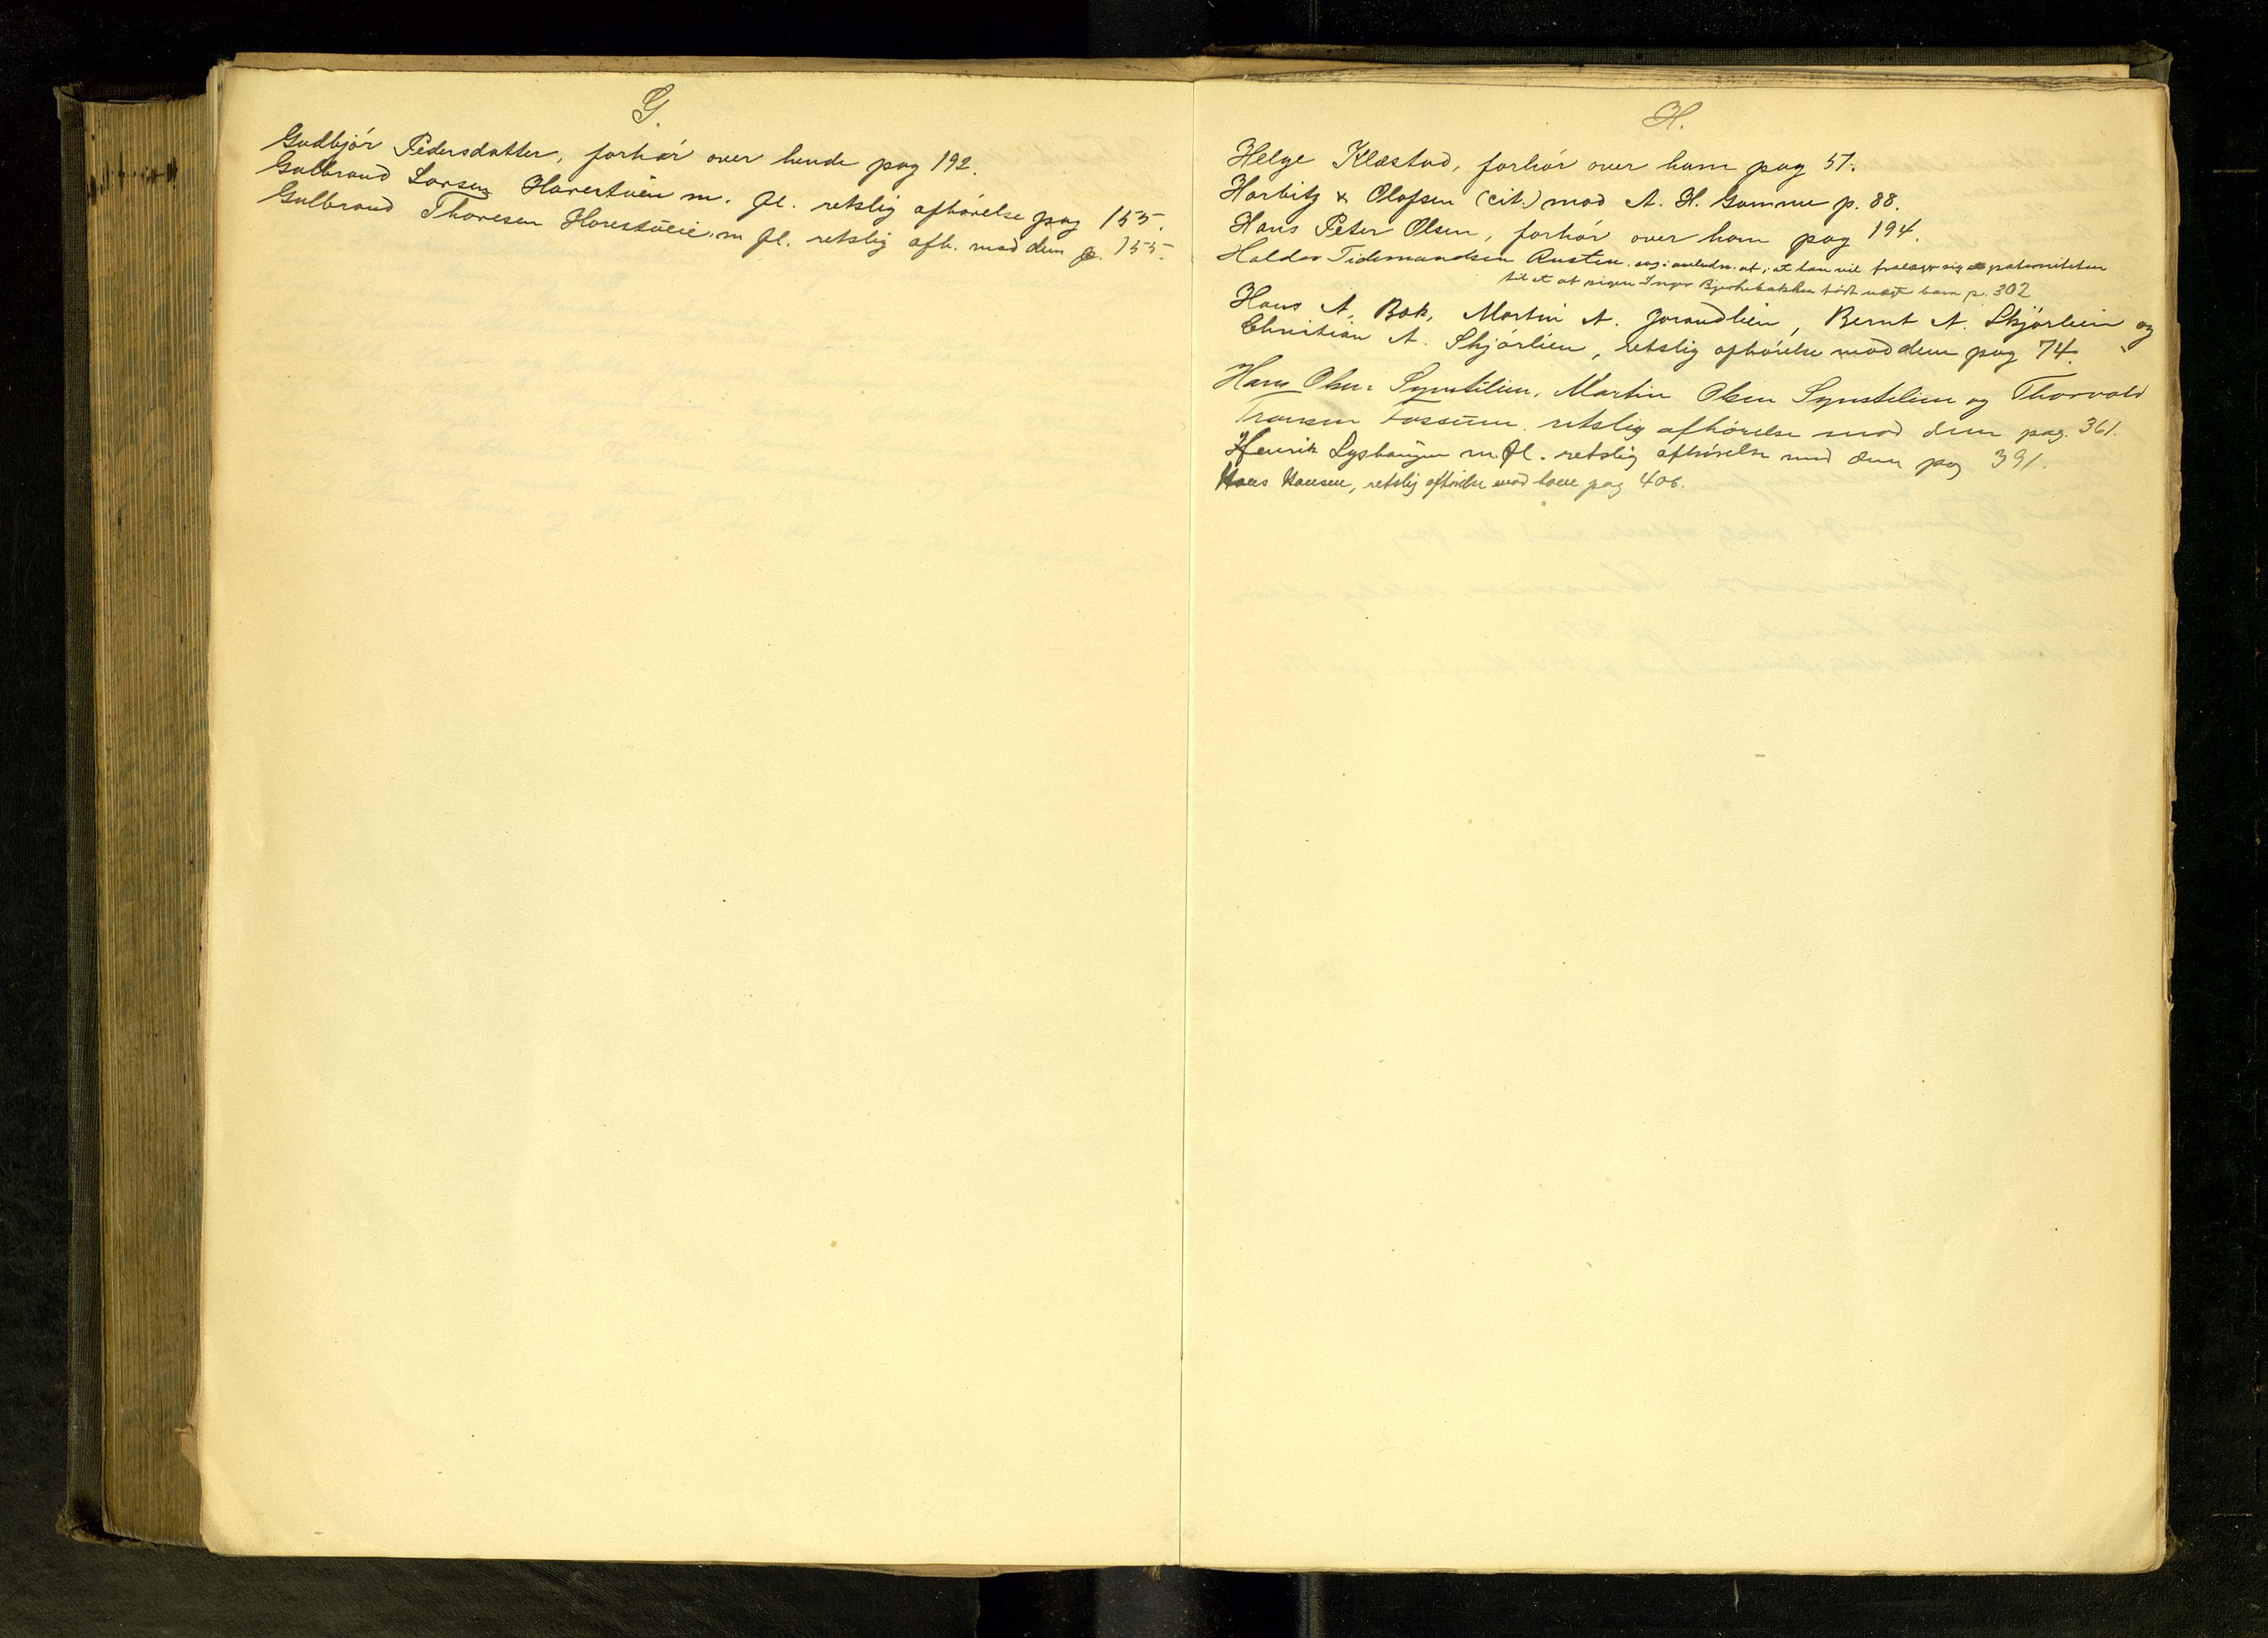 G.
Gudbjør Pedersdatter, forhør over hende pag 192.
Gulbrand Larsen Harestuen m. fl. retslig afhørelse pag 155.
Gulbrand Thoresen Harestueie m fl. retslig afh. mod dem p. 155.
H.
Helge Klæstad, forhør over ham pag 57.
Harbitz & Olafsen (cit.) mod A. H. Gamme p. 88.
Hans Peter Olsen, forhør over ham pag 194.
Haldor Tidemandsen Rusten, sag i anledn. af, at han vil fralægge sig paterniteten
til et af pigen Inger Bjerkebakken født uægt barn p. 302
Hans A. Bæk, Martin A. Jorandlien, Bernt A. Skjørlien og
Christian A. Skjørlien, retslig afhørelse mod dem pag 74.
Hans Olsen Synstelien, Martin Olsen Synstelien og Thorvald
Fossum retslig afhørelse mod dem pag. 361.
Henrik Lyshaugen m. fl. retslig afhørelse mod dem pag 391.
Hans Hansen, retslig afhørelse mod ham pag 406.